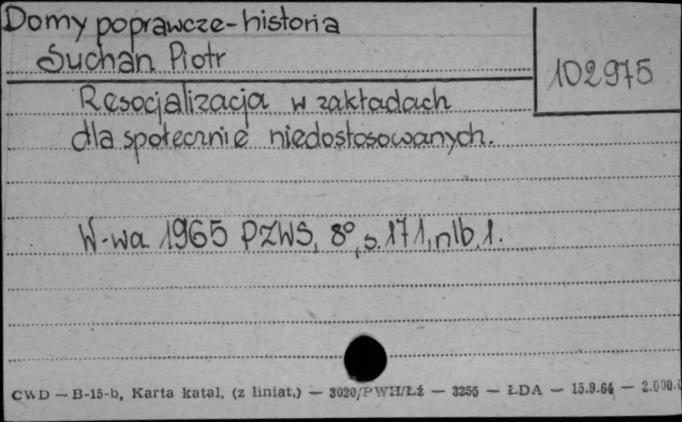 Domy poprawcze-historia
Suchan Piotr
102975
Resocjalizacja w zakładach
dla społecznie niedostosowanych.
W-wa 1965 PZWS, 8°, s. 171, nlb. 1.
CWD — B-15-b, Karta katal. (z liniat.) — 3020/PWH/Łź — 3256 — ŁDA — 15.9.64 — 2.000.0